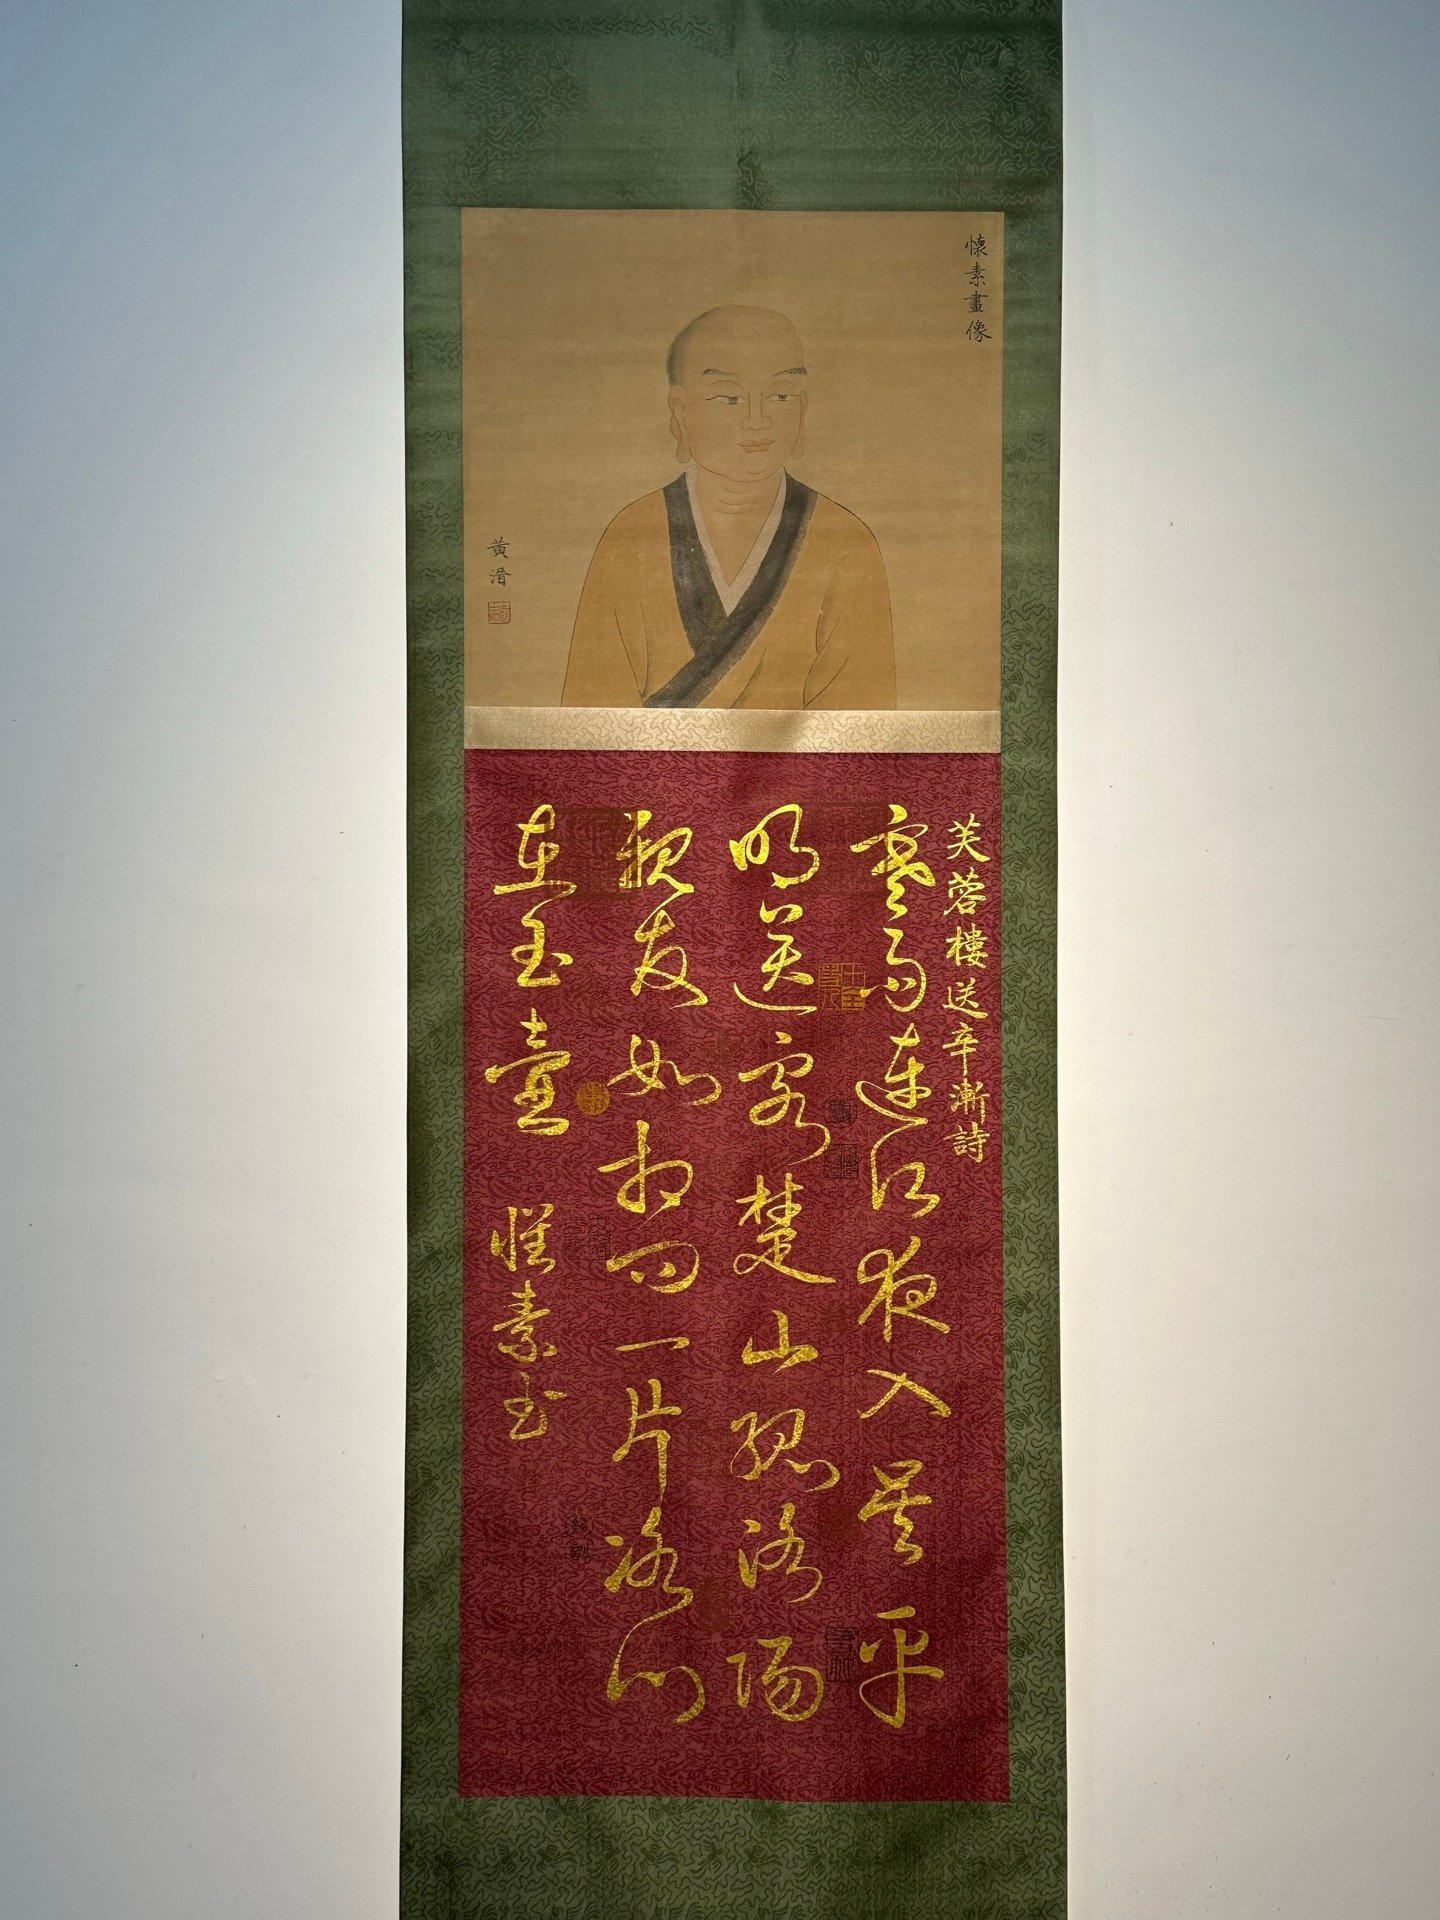 懷素畫像
黃湑
芙蓉樓送辛漸詩
寒雨連江夜入吳平
明送客楚山孤洛陽
親友如相問一片冰心
在玉壺
懷素書